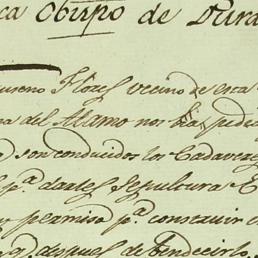 ca Obispo de Dura
ureno Flores vecino de esta
na del Alamo nos ha pedi
son conducidos los Cadavere
pª darles Sepultura E
permiso pª construir
q despues de bendecirlo